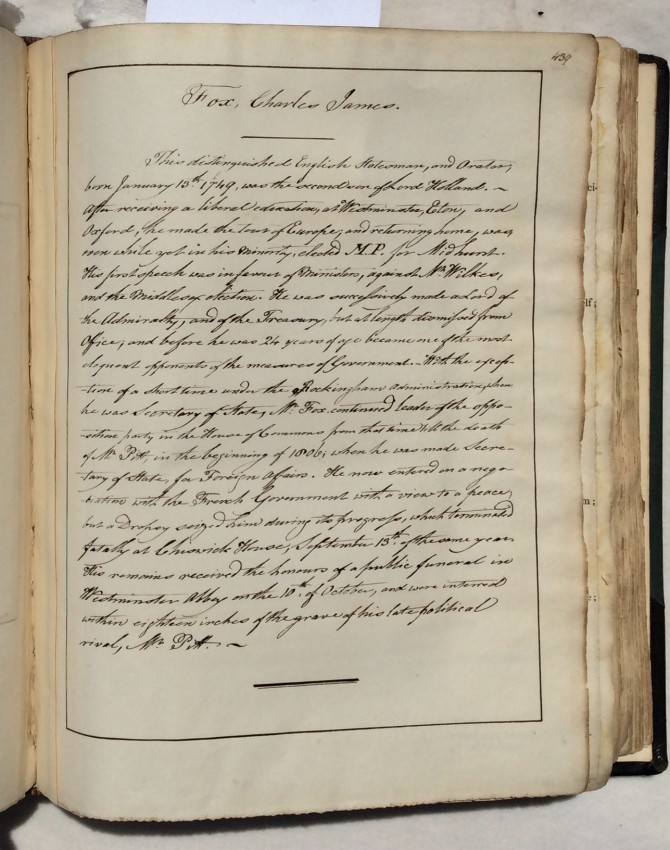 439
Fox, Charles James.
This distinguished English Statesman, and Orator,
born January 13th 1749, was the second son of Lord Holland. ~
After receiving a liberal education, at Westminster, Eton, and
Oxford, he made the tour of Europe, and returning home, was,
even while yet in his minority, elected M.P. for Midhurst.
His first speech was in favour of Ministers, against Mr Wilkes,
and the Middlesex election. He was successively made a Lord of
the Admiralty, and of the Treasury, but at length dismissed from
Office, and before he was 24 years of age became one of the most
eloquent opponents of the measures of Government. - With the excep-
tion of a short time under the Rockingham administration, when
he was Secretary of State, Mr Fox continued leader of the oppo-
sition party in the House of Commons from that time till the death
of Mr Pitt, in the beginning of 1806, when he was made Secre-
tary of State, for Foreign Affairs. He now entered on a nego-
tiation with the French Government with a view to a peace,
but a Dropsy seized him during its progress, which terminated
fatally at Chiswick House, September 13th of the same year.
His remains received the honours of a public funeral in
Westminster Abbey on the 10th of October, and were interred
within eighteen inches of the grave of his late political
rival, Mr Pitt. ~